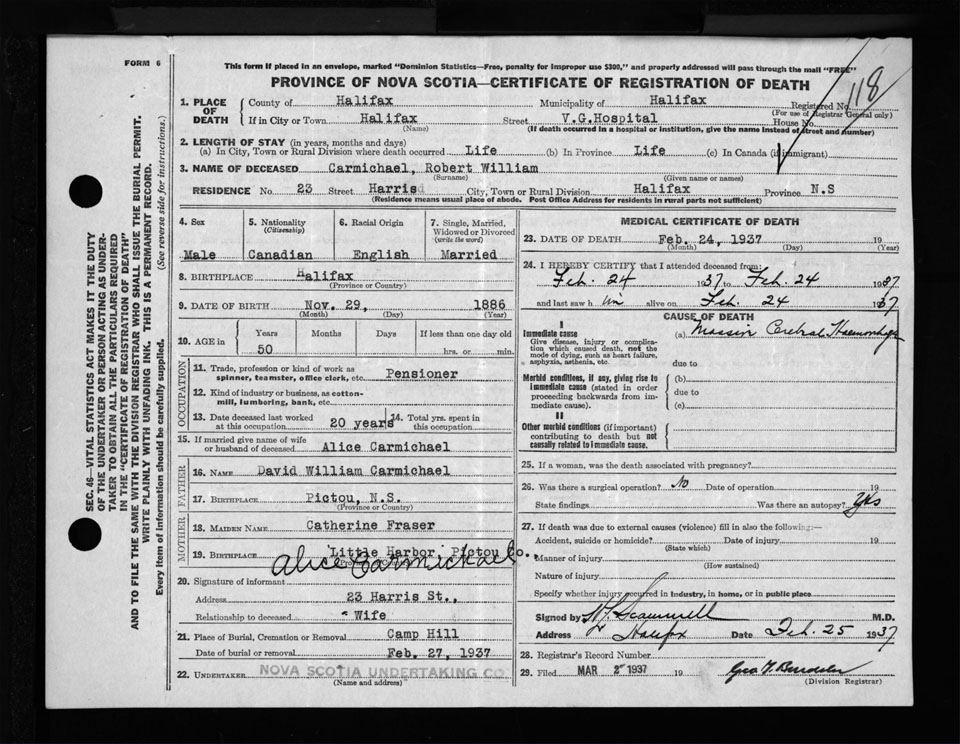 FORM 6
This form if placed in an envelope, marked "Dominion Statistics—Free, penalty for improper use $300," and properly addressed will pass through the mail "FREE"
PROVINCE OF NOVA SCOTIA—CERTIFICATE OF REGISTRATION OF DEATH
118
1. PLACE OF DEATH
County of Halifax Municipality of Halifax Registered No.
(For use of Registrar General only)
If in City or Town Halifax Street V.G.Hospital House No.
(Name) (If death occurred in a hospital or institution, give the name instead of street and number)
2. LENGTH OF STAY (in years, months and days)
(a) In City, Town or Rural Division where death occurred Life (b) In Province Life (c) In Canada (if immigrant)
3. NAME OF DECEASED Carmichael, Robert William
(Surname) (Given name or names)
RESIDENCE No. 23 Street Harris City, Town or Rural Division Halifax Province N.S
(Residence means usual place of abode. Post Office Address for residents in rural parts not sufficient)
4. Sex 5. Nationality (Citizenship) 6. Racial Origin 7. Single, Married, Widowed or Divorced (write the word)
Male Canadian English Married
8. BIRTHPLACE Halifax
(Province or Country)
9. DATE OF BIRTH Nov. 29, 1886
(Month) (Day) (Year)
10. AGE in Years Months Days If less than one day old
50 hrs. or min.
OCCUPATION
11. Trade, profession or kind of work as spinner, teamster, office clerk, etc. Pensioner
12. Kind of industry or business, as cotton-mill, lumbering, bank, etc.
13. Date deceased last worked at this occupation 20 years 14. Total yrs. spent in this occupation
15. If married give name of wife or husband of deceased Alice Carmichael
FATHER
16. NAME David William Carmichael
17. BIRTHPLACE Pictou, N.S.
(Province or Country)
MOTHER
18. MAIDEN NAME Catherine Fraser
19. BIRTHPLACE Little Harbor, Pictou Co.,
Alice Carmichael
20. Signature of informant
Address 23 Harris St.,
Relationship to deceased Wife
21. Place of Burial, Cremation or Removal Camp Hill
Date of burial or removal Feb. 27, 1937
22. UNDERTAKER NOVA SCOTIA UNDERTAKING CO.
(Name and address)
MEDICAL CERTIFICATE OF DEATH
23. DATE OF DEATH Feb. 24, 1937 19
(Month) (Day) (Year)
24. I HEREBY CERTIFY that I attended deceased from:
Feb. 24 1937 to Feb. 24 1937
and last saw h im alive on Feb. 24 1937
CAUSE OF DEATH
I
Immediate cause (a) Cerebral Haemorrhage
Give disease, injury or complication which caused death, not the mode of dying, such as heart failure, asphyxia, asthenia, etc.
due to
Morbid conditions, if any, giving rise to immediate cause (stated in order proceeding backwards from immediate cause).
(b)
due to
(c)
II
Other morbid conditions (if important) contributing to death but not causally related to immediate cause.
25. If a woman, was the death associated with pregnancy?
26. Was there a surgical operation? No Date of operation 19
State findings Was there an autopsy? Yes
27. If death was due to external causes (violence) fill in also the following:—
Accident, suicide or homicide? Date of injury 19
(State which)
Manner of injury
(How sustained)
Nature of injury
Specify whether injury occurred in Industry, in home, or in public place
Signed by M.D.
Address Halifax Date Feb. 25 1937
28. Registrar's Record Number
29. Filed MAR 2 1937 19
(Division Registrar)
SEC. 46—VITAL STATISTICS ACT MAKES IT THE DUTY
OF THE UNDERTAKER OR PERSON ACTING AS UNDER-
TAKER TO OBTAIN ALL THE PARTICULARS REQUIRED
IN THE "CERTIFICATE OF REGISTRATION OF DEATH"
AND TO FILE THE SAME WITH THE DIVISION REGISTRAR WHO SHALL ISSUE THE BURIAL PERMIT.
WRITE PLAINLY WITH UNFADING INK. THIS IS A PERMANENT RECORD.
Every item of information should be carefully supplied. (See reverse side for instructions.)